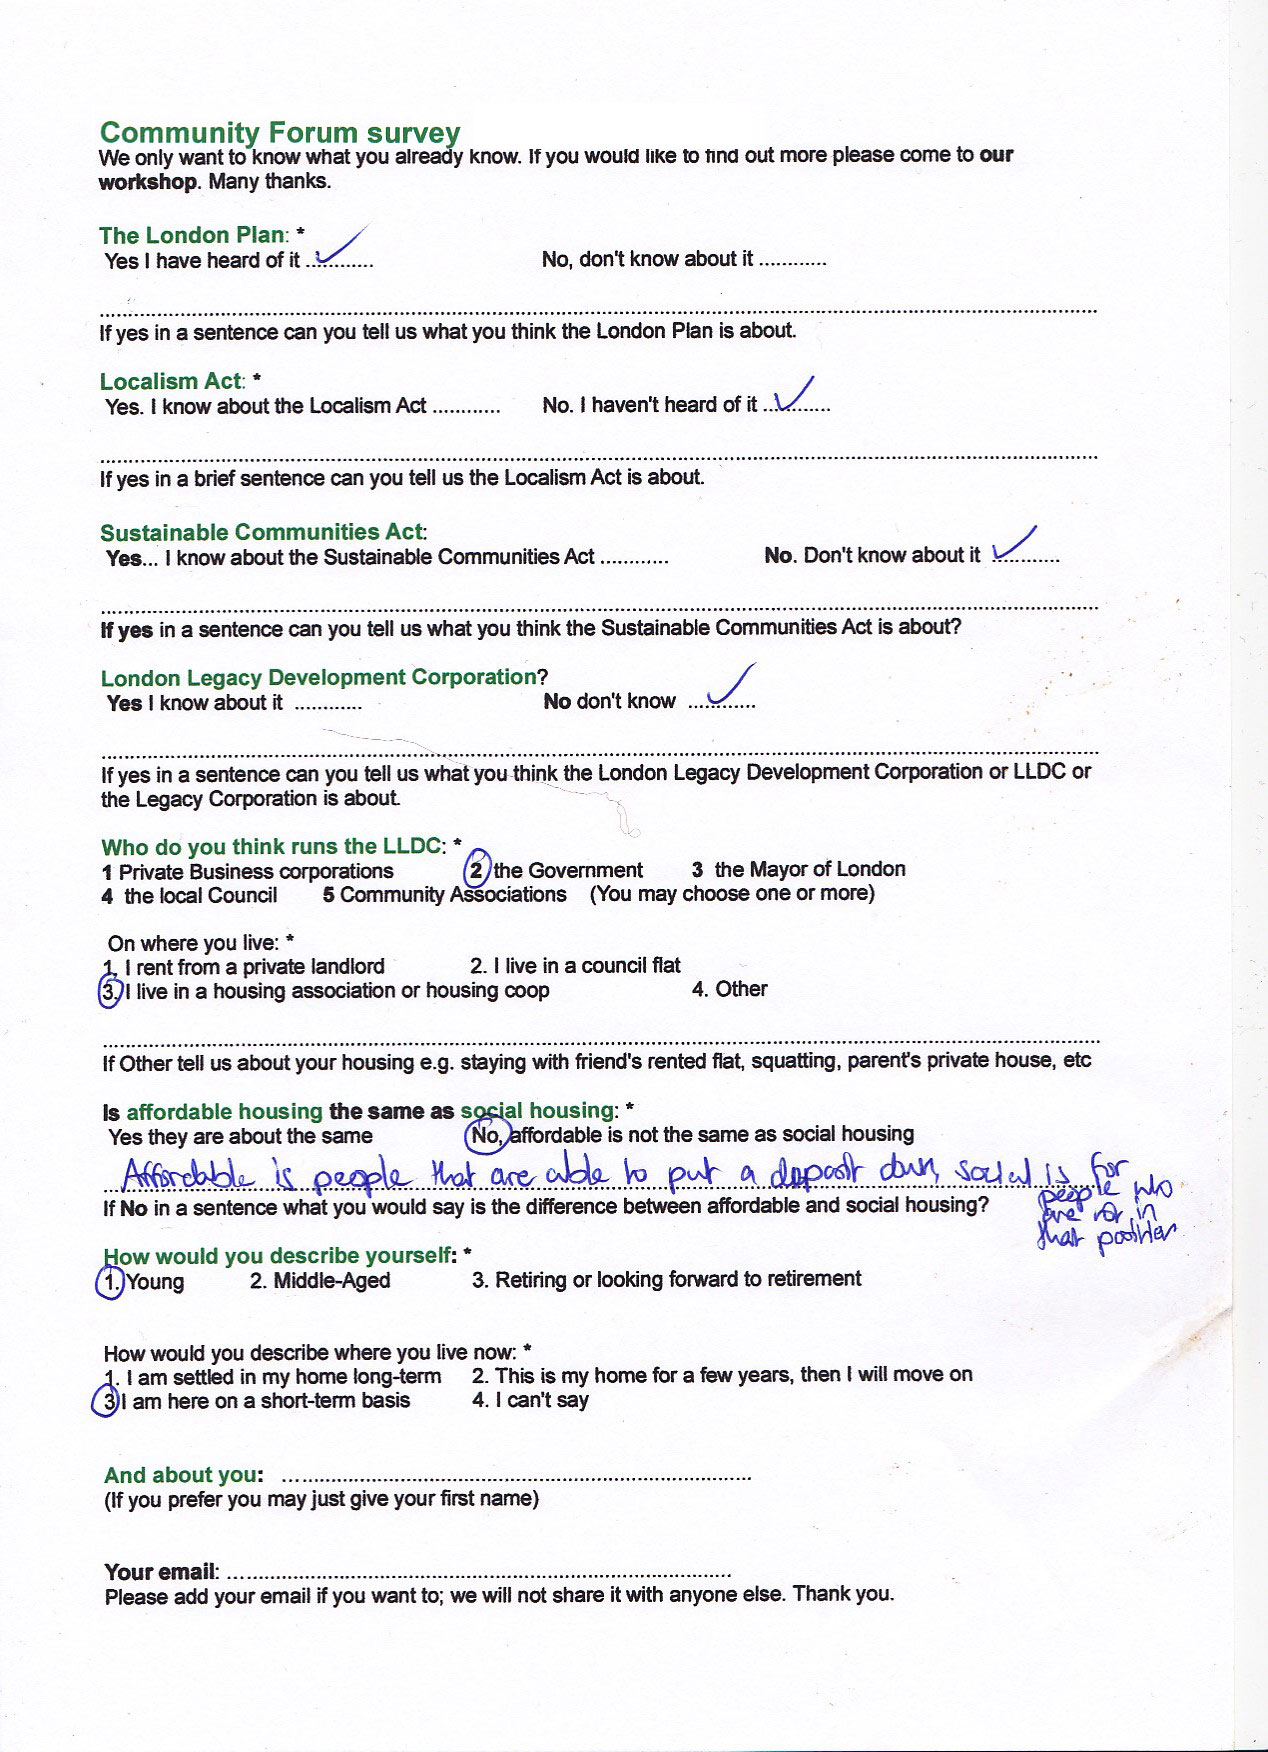 Community Forum survey
We only want to know what you already know. If you would like to find out more please come to our
workshop. Many thanks.
The London Plan: *
Yes I have heard of it ............ No, don't know about it ............
If yes in a sentence can you tell us what you think the London Plan is about.
Localism Act: *
Yes. I know about the Localism Act ............ No. I haven't heard of it ............
If yes in a brief sentence can you tell us the Localism Act is about.
Sustainable Communities Act:
Yes... I know about the Sustainable Communities Act ............ No. Don't know about it ............
If yes in a sentence can you tell us what you think the Sustainable Communities Act is about?
London Legacy Development Corporation?
Yes I know about it ............ No don't know ............
If yes in a sentence can you tell us what you think the London Legacy Development Corporation or LLDC or
the Legacy Corporation is about.
Who do you think runs the LLDC: *
1 Private Business corporations 2 the Government 3 the Mayor of London
4 the local Council 5 Community Associations (You may choose one or more)
On where you live: *
1. I rent from a private landlord 2. I live in a council flat
3. I live in a housing association or housing coop 4. Other
If Other tell us about your housing e.g. staying with friend's rented flat, squatting, parent's private house, etc
Is affordable housing the same as social housing: *
Yes they are about the same No, affordable is not the same as social housing
Affordable is people that are able to put a deposit down, social is for
people who
are not in
that position
If No in a sentence what you would say is the difference between affordable and social housing?
How would you describe yourself: *
1. Young 2. Middle-Aged 3. Retiring or looking forward to retirement
How would you describe where you live now: *
1. I am settled in my home long-term 2. This is my home for a few years, then I will move on
3 I am here on a short-term basis 4. I can't say
And about you: ............
(If you prefer you may just give your first name)
Your email: ............
Please add your email if you want to; we will not share it with anyone else. Thank you.